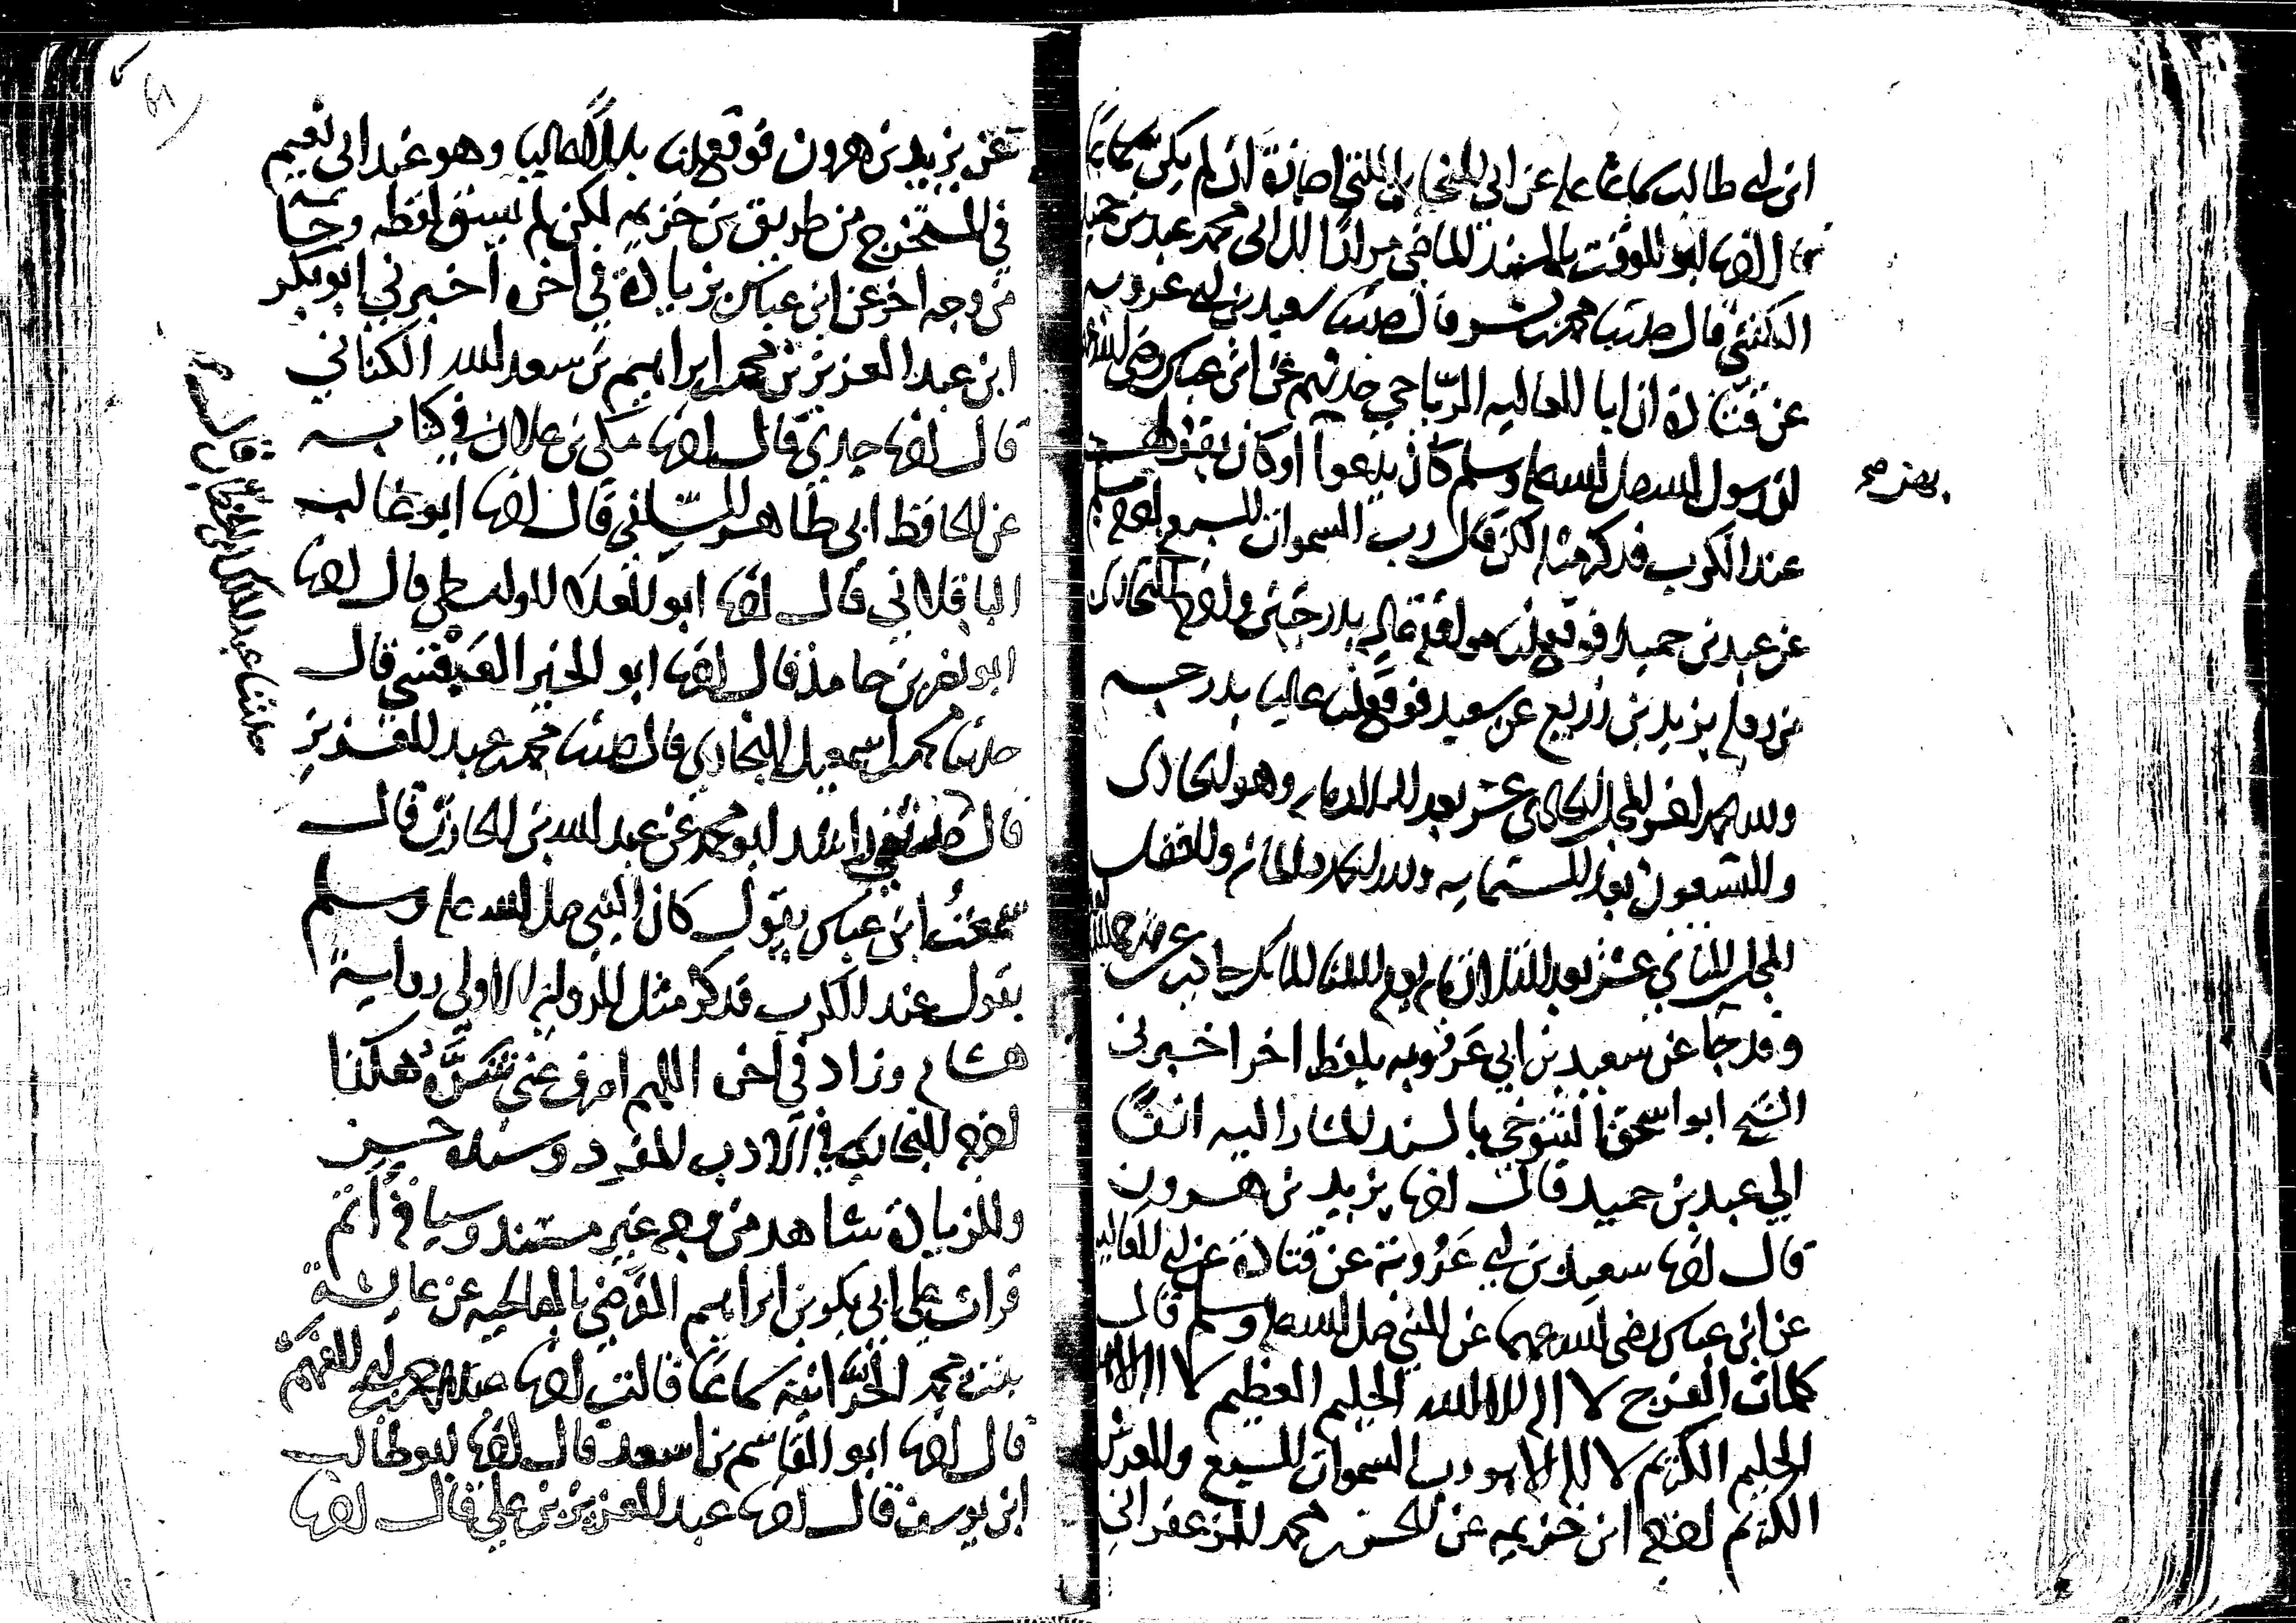 ابن ابي طالب سماعا عليه عن ابي المنجا بن اللتي اجازة ان لم يكن سماعا
انا ابو الوقت بالسند الماضي مرارا الى ابي محمد عبد بن حميد
الكشي قال حدثنا محمد بن بشر قال حدثنا سعيد بن ابي عروبة
عن قتادة ان ابا العالية الرياحي حدثهم عن ابن عباس رضي الله عنهما
ان رسول الله صلى الله عليه وسلم كان يدعوا او كان يقولهن
عند الكرب فذكر مثله لكن قال رب السموات السبع اخرجه مسلم
عن عبد بن حميد فوقع لنا موافقة عالية بدرجتين واخرجه البخاري
من رواية يزيد بن زريع عن سعيد فوقع لنا عاليا بدرجة
اخر المجلس الحادي عشر بعد وهو الحادي
والتسعون بعد الستماية
المجلس الثاني عشر بعد
وقد جا عن سعيد بن ابي عروبه بلفظ اخر اخبرني
الشيخ ابو اسحق التنوخي بالسند المشار اليه انفا
الي عبد بن حميد قال اخبرنا يزيد بن هرون
قال اخبرنا سعيد بن ابي عروبة عن قتادة عن ابي العالية
عن ابن عباس رضي الله عنهما عن النبي صلى الله عليه وسلم قال
كلمات الفرج لا اله الا الله الحليم العظيم لا اله الا الله
الحليم الكريم لا اله الا هو رب السموات السبع والعرش
الكريم اخرجه ابن خزيمه عن الحسن بن محمد الزعفراني
عن يزيد بن هرون فوقع لنا بدلا عاليا وهو عند ابي نعيم
في المستخرج من طريق بن خزيمه لكن لم يسق لفظه وجا
من وجه اخر عن ابن عباس بزيادة في اخره اخبرني ابو بكر
ابن عبد العزيز بن محمد بن ابراهيم بن سعد الله الكناني
قال اخبرنا جدي قال اخبرنا مكي بن علان في كتابه
عن الحافظ ابي طاهر السلفي قال اخبرنا ابو غالب
الباقلاني قال اخبرنا ابو العلاء الواسطي قال اخبرنا
ابو نصر بن حامد قال اخبرنا ابو الخير العبقسي قال
حدثنا محمد بن اسمعيل البخاري قال حدثنا محمد بن عبد العزيز
حدثنا عبد الملك بن الخطاب قال
قال حدثني راشد ابو محمد عن عبد الله بن الحارث قال
سمعت ابن عباس يقول كان النبي صلى الله عليه وسلم
يقول عند الكرب فذكر مثل الرواية الاولى رواية
هشام وزاد في اخره اللهم اصرف عني شره هكذا
اخرجه البخاري في الادب المفرد وسنده حسن
وللزيادة شاهد من وجه غير مسند وسياقه اتم
قرات علي ابي بكر بن ابراهيم الفرضي بالصالحيه عن عايشة
بنت محمد الحرانية سماعا قالت اخبرنا بن ابي الفهم
قال اخبرنا ابو القاسم بن اسعد قال اخبرنا ابو طالب
ابن يوسف قال اخبرنا عبد العزيز بن علي قال اخبرنا